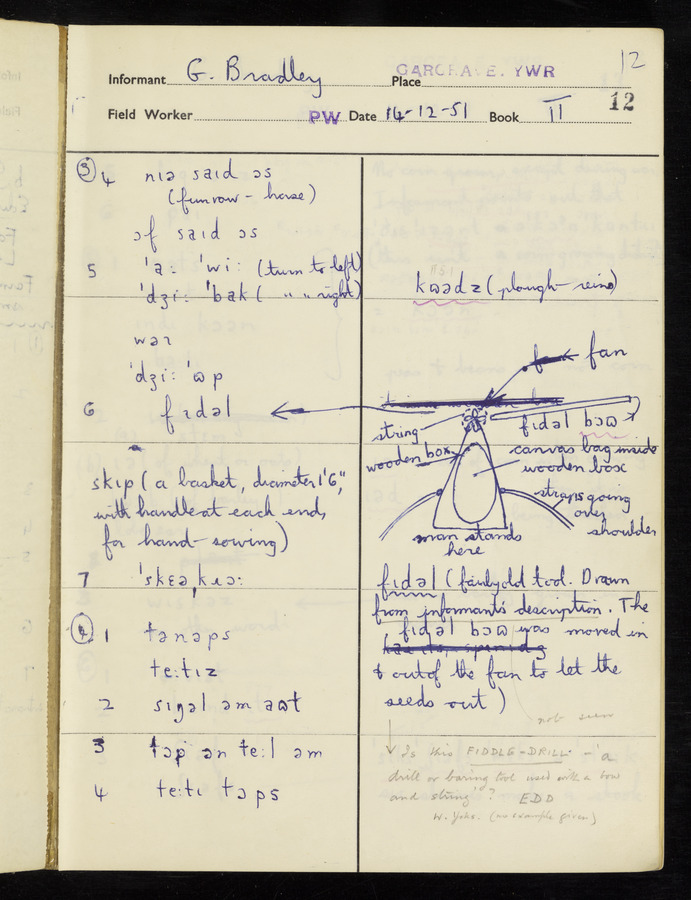 12
Informant G. Bradley Place GARGRAVE. YWR
12
Field Worker PW Date 14-12-51 Book II
③ 4 nɪə saɪd ɔs
(furrow - horse)
ɔf saɪd ɔs
5 'aː 'wiː (turn to left)
'dʒiː 'bak ( " " right)
wəɹ
'dʒiː 'ɷp
6 fɪdəl
skɪp (a basket, diameter 1'6",
with handle at each end,
for hand-sowing)
7 'skɛəˌkɹɔː
④ 1 tənəps
teːtɪz
2 sɪŋəl əm aɷt
3 tɔp ən teːl əm
4 teːtɪ tɔps
kɷədz (plough-reins)
fan
string
fɪdəl bɔɷ
wooden box
canvas bag inside
wooden box
straps going
over
shoulder
man stands
here
fɪdəl (fairly old tool. Drawn
from informant's description. The
fɪdəl bɔɷ was moved in
& out of the fan to let the
seeds out)
not seen
Is this FIDDLE-DRILL - 'a
drill or boring tool used with a bow
and string'? EDD
W. Yoks. (no example given)